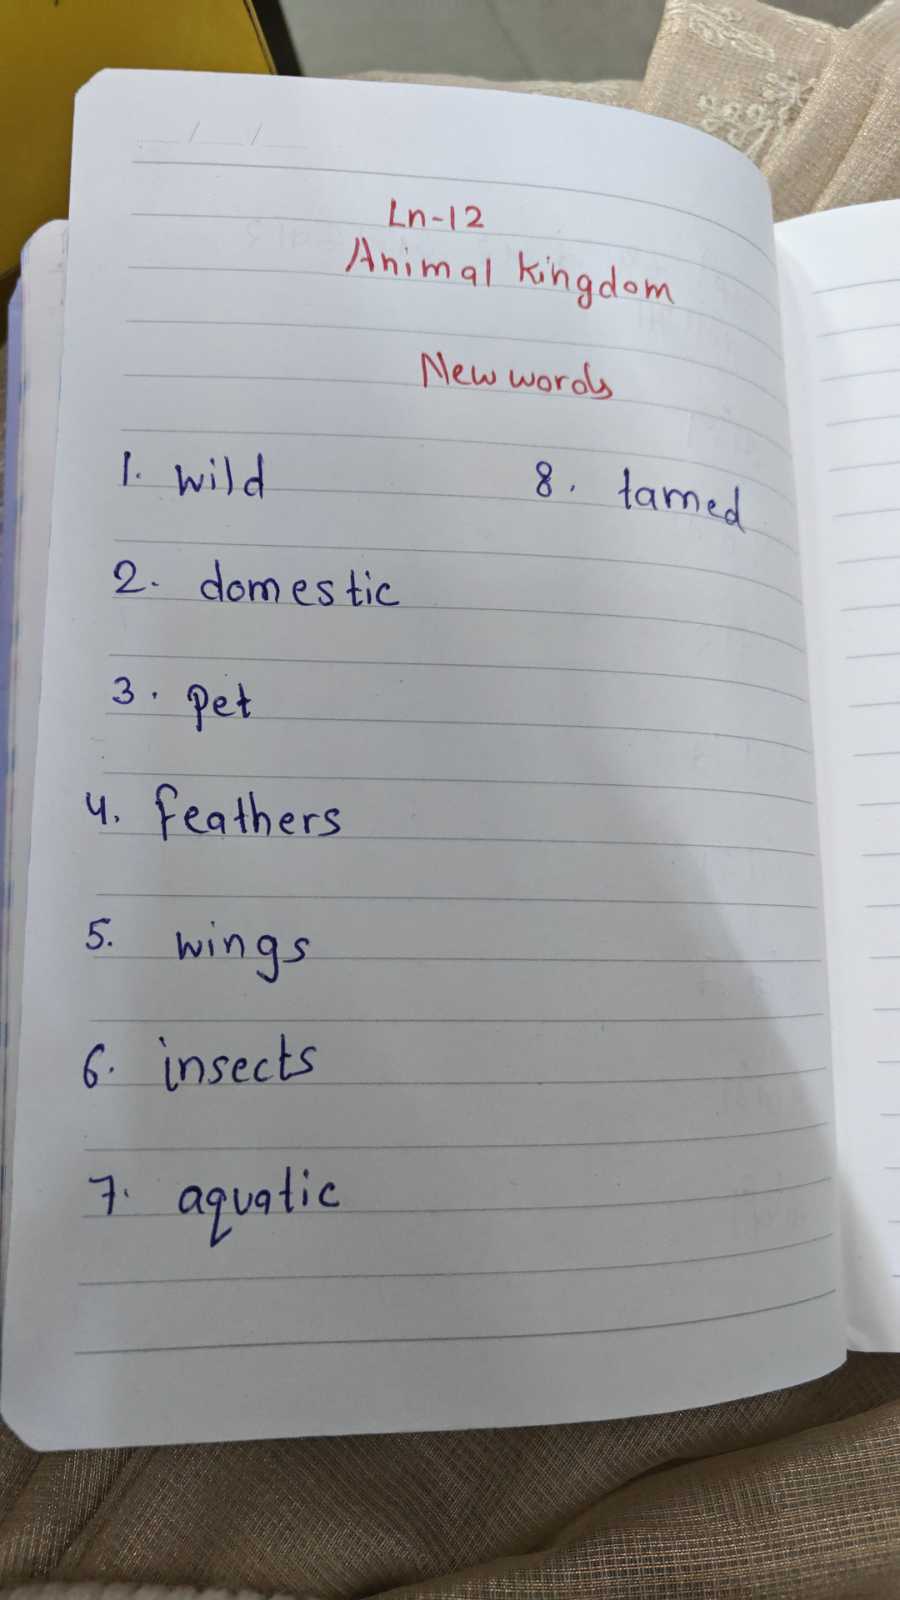 Ln-12
Animal Kingdom
New words
1. wild
2. domestic
3. pet
4. feathers
5. wings
6. insects
7. aquatic
8. tamed